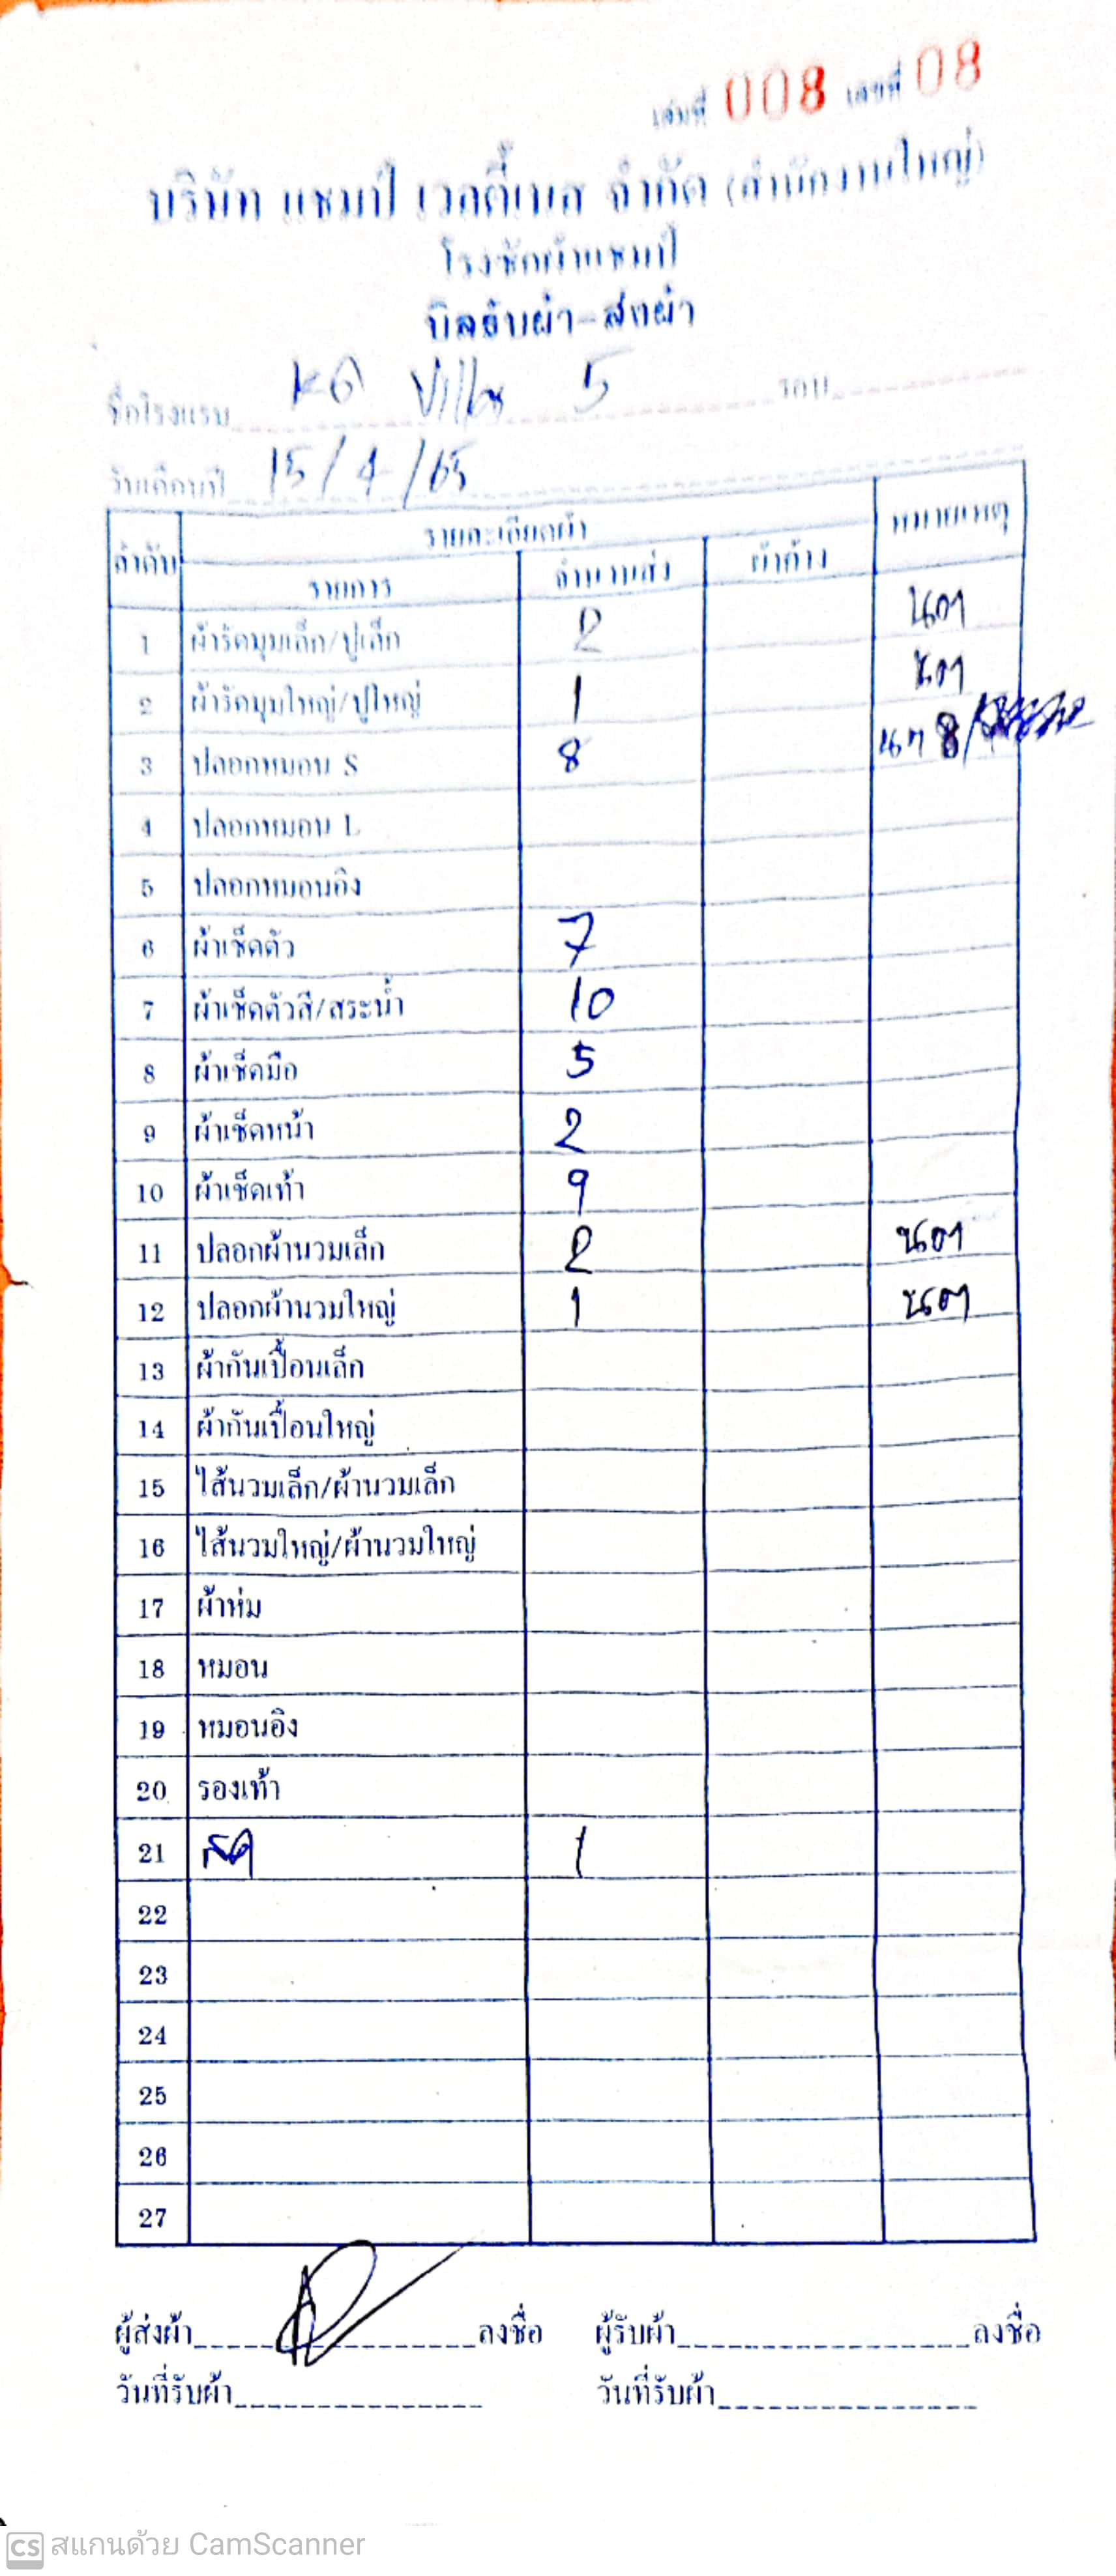 เล่มที่ 008 เลขที่ 08
บริษัท แชมป์ เวลตี้เนส จำกัด (สำนักงานใหญ่)
โรงซักผ้าแชมป์
บิลรับผ้า-ส่งผ้า
ชื่อโรงแรม Villa 5 รอบ
วันเดือนปี 15/4/65
ลำดับ รายละเอียดผ้า หมายเหตุ
รายการ จำนวนส่ง ผ้าค้าง
1 ผ้ารัดมุมเล็ก/ปูเล็ก 2 นอก
2 ผ้ารัดมุมใหญ่/ปูใหญ่ 1 นอก
3 ปลอกหมอน S 8 8/
4 ปลอกหมอน L
5 ปลอกหมอนอิง
6 ผ้าเช็ดตัว 7
7 ผ้าเช็ดตัวสี/สระน้ำ 10
8 ผ้าเช็ดมือ 5
9 ผ้าเช็ดหน้า 2
10 ผ้าเช็ดเท้า 9
11 ปลอกผ้านวมเล็ก 2 นอก
12 ปลอกผ้านวมใหญ่ 1 นอก
13 ผ้ากันเปื้อนเล็ก
14 ผ้ากันเปื้อนใหญ่
15 ไส้นวมเล็ก/ผ้านวมเล็ก
16 ไส้นวมใหญ่/ผ้านวมใหญ่
17 ผ้าห่ม
18 หมอน
19 หมอนอิง
20 รองเท้า
21 1
22
23
24
25
26
27
ผู้ส่งผ้า ลงชื่อ ผู้รับผ้า ลงชื่อ
วันที่รับผ้า วันที่รับผ้า
CS สแกนด้วย CamScanner